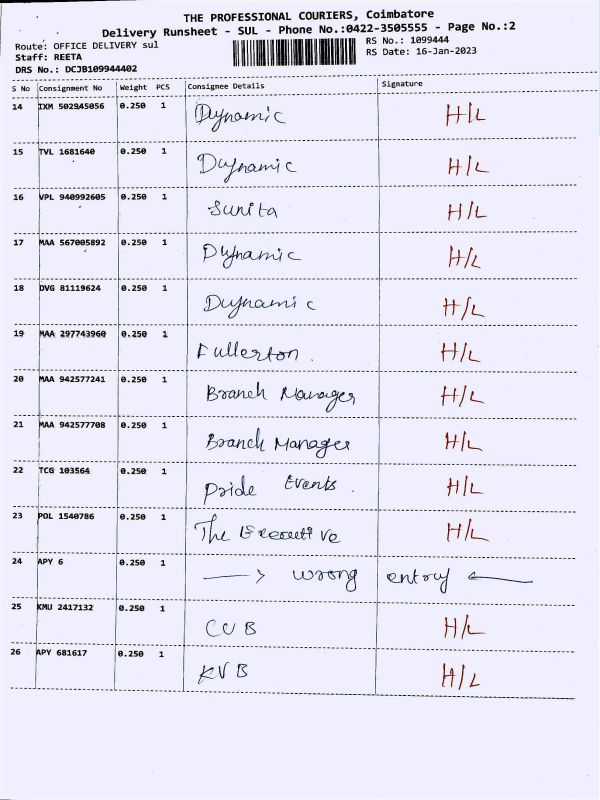 THE PROFESSIONAL COURIERS, Coimbatore
Delivery Runsheet - SUL - Phone No.:0422-3505555 - Page No.:2
Route: OFFICE DELIVERY sul RS No.: 1099444
Staff: REETA RS Date: 16-Jan-2023
DRS No.: DCJB109944402
S No Consignment No Weight PCS Consignee Details Signature
14 IXM 502945056 0.250 1 Dynamic H/L
15 TVL 1681640 0.250 1 Dynamic H/L
16 VPL 940992605 0.250 1 Sunita H/L
17 MAA 567005892 0.250 1 Dynamic H/L
18 DVG 81119624 0.250 1 Dynamic H/L
19 MAA 297743960 0.250 1 Fullerton. H/L
20 MAA 942577241 0.250 1 Branch Manager H/L
21 MAA 942577708 0.250 1 Branch Manager H/L
22 TCG 103564 0.250 1 Pride Events. H/L
23 POL 1540786 0.250 1 The Executive H/L
24 APY 6 0.250 1 → wrong entry ←
25 KMU 2417132 0.250 1 CUB H/L
26 APY 681617 0.250 1 KVB H/L